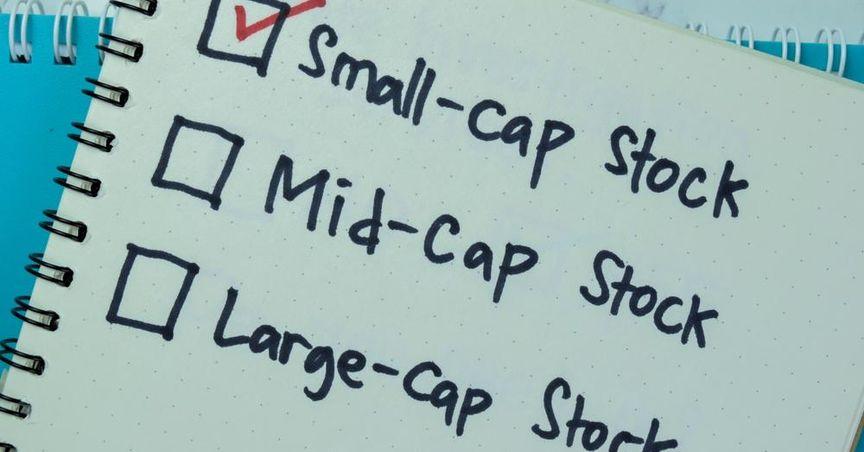 Small-Cap Stock
Mid-Cap Stock
Large-Cap Stock